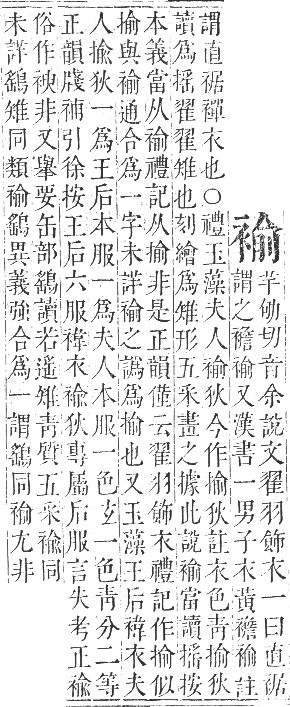 褕
羊劬切音余說文翟羽飾衣一曰直裾
謂之襜褕又漢書一男子衣黃襜褕註
謂直裾襌衣也○禮玉藻夫人褕狄今作揄狄註衣色靑揄狄
讀爲揺翟翟雉也刻繪爲雉形五采畫之據此說褕當讀揺按
本義當从褕禮記从揄非是正韻僅云翟羽飾衣禮記作揄似
揄與褕通合爲一字未詳褕之譌爲揄也又玉藻王后褘衣夫
人揄狄一爲王后本服一爲夫人本服一色玄一色靑分二等
正韻牋補引徐按王后六服褘衣褕狄專屬后服言失考正褕
俗作非又舉要缶部鷂讀若遥雉靑質五采褕同
未詳鷂雉同類褕鷂異義強合爲一謂鷂同褕尤非